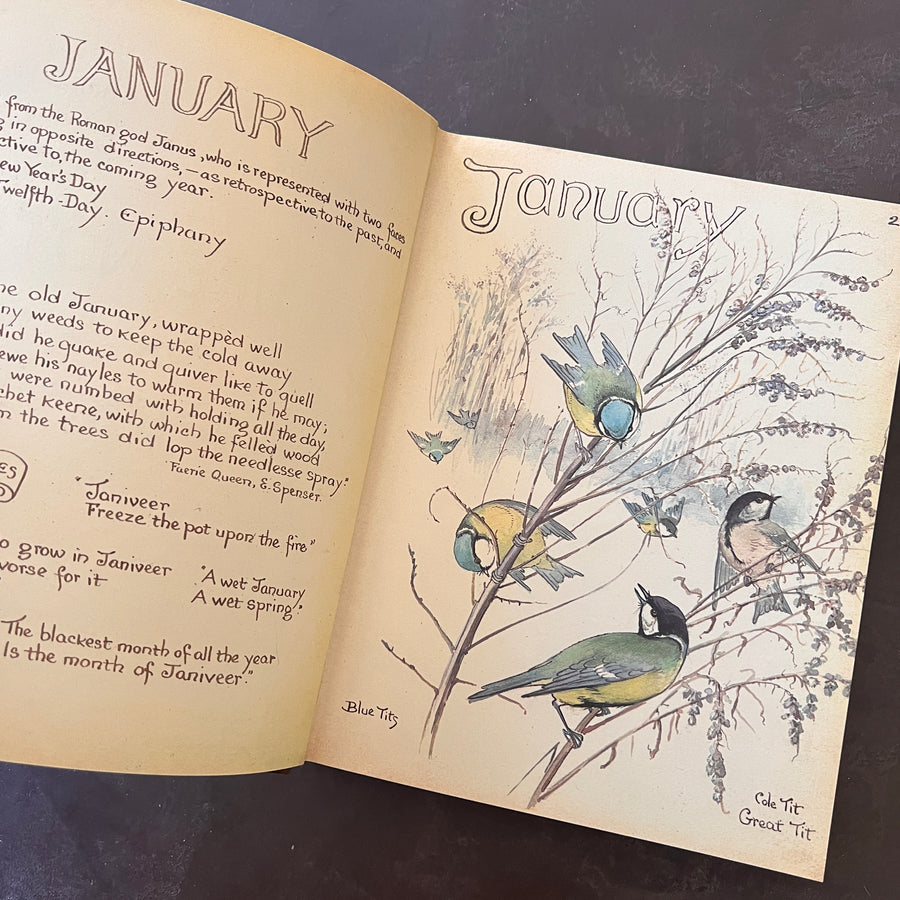 JANUARY
from the Roman god Janus, who is represented with two faces
in opposite directions, — as retrospective to the past, and
to, the coming year.
Year's Day
Twelfth-Day. Epiphany
old January, wrappèd well
weeds to keep the cold away
did he quake and quiver like to quell
his nayles to warm them if he may;
were numbed with holding all the day,
keene, with which he felled wood
the trees did lop the needlesse spray."
Faerie Queen, E. Spenser.
"Janiveer
Freeze the pot upon the fire"
grow in Janiveer
for it
"A wet January
A wet spring."
The blackest month of all the year
Is the month of Janiveer."
January
2
Blue Tits
Cole Tit
Great Tit